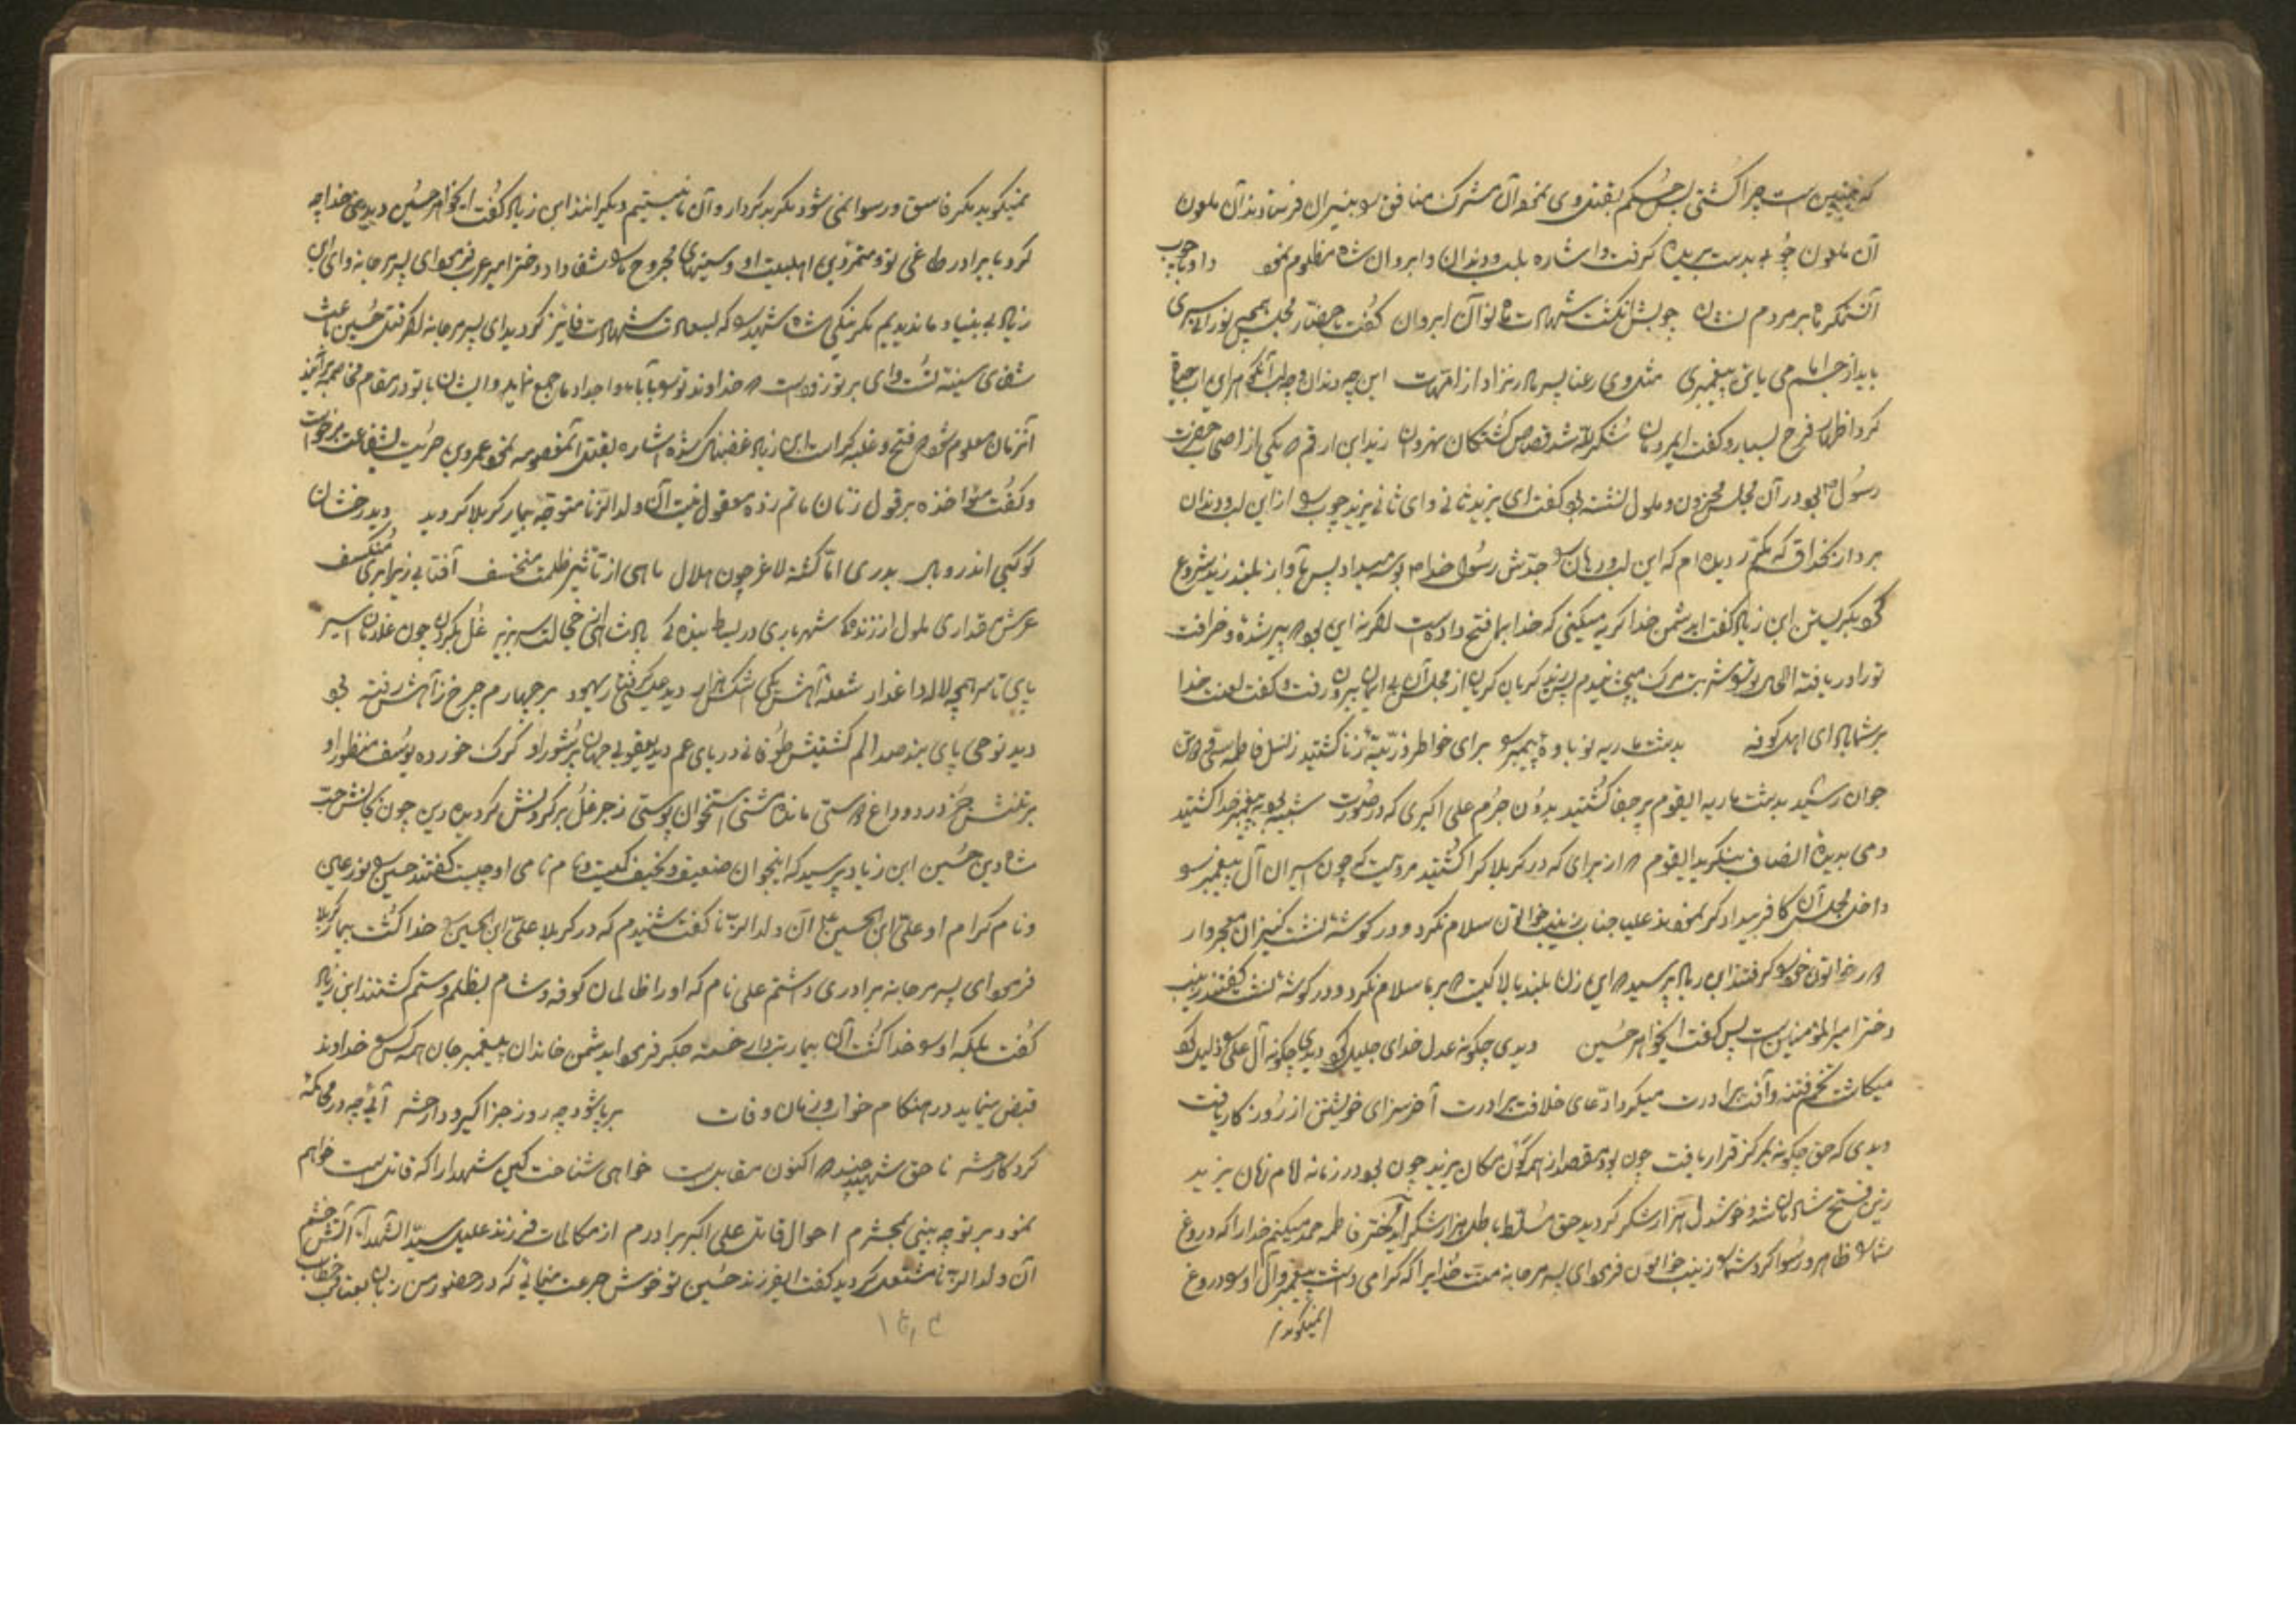 که چنین است چرا کشتی پس حکم بقتل وی نمود آن مشرک منافق سر بنیران فرستادند آن ملعون
آن ملعون چوبی بدست پرید گرفت و اشاره بلب و دندان و ابروان شاه مظلوم نمود داد با چوب
آن ستمگر بر مردم نشان چوبش انگشت شهادت آن ابروان گفت با حضار مجلس
باید از جد امام می یابن پیغمبری مثل وی رعنا پسر نزاد از امهات این چه دندان و چه لب
کرد اظهار فرح بسیار و گفت ایمردمان شکر لله شد قصاص کشتگان نهروان زید ابن ارقم که یکی از اصحاب حضرت
رسول بود در آن مجلس محزون و ملول نشسته بود گفت ای یزید ثانی وای ثانی یزید چوب را از این لب و دندان
بردار بخدا قسم که مکرر دیده ام که این لب و دهان را جدش رسول خدا بوسه میداد پس با آواز بلند زید شروع
کرد بگریستن ابن زیاد گفت ایدشمن خدا گریه میکنی که خدا بما فتح داده است اگر نه این بود که پیر شده و خرافت
تو را دریافته الحال بتو شربت مرگ میچشانیدم پس زید گریان گریان از مجلس آن بی ایمان بیرون رفت و گفت لعنت خدا
بر شما باد ای اهل کوفه بدشت ماریه نوباوه پیمبر را برای خاطر ذریّه زنا کشتید ز نسل فاطمه
جوان رشید بدشت ماریه ایقوم پر جفا کشتید بدون جرم علی اکبری که در صورت شبیه بود به پیغمبر خدا کشتید
دمی بدیده انصاف بنگرید ایقوم که از برای که در کربلا کرا کشتید مرویست که چون اسیران آل پیغمبر را
داخل مجلس آن کافر بیدادگر نمودند علیا جناب زینب خواتون سلام نکرد و در گوشه نشست کنیزان معجروار
دور خواتون خود را گرفتند ابن زیاد پرسید که این زن بلند بالا کیست که بر ما سلام نکرد و در گوشه نشست گفتند زینب
دختر امیر المؤمنین است پس گفت ایخواهر حسین دیدی چگونه عدل خدای جلیل کرد دیدی چگونه آل علی را ذلیل کرد
میکاشت تخم فتنه و آفت برادرت میکرد ادّعای خلافت برادرت آخر سزای خویشتن از روزگار یافت
دیدی که حق چگونه بمرکز قرار یافت چون بود مقصد از همه کون مکان یزید چون بود در زمانه امام زمان یزید
زین فتح شادمان شد و خوشدل هزار شکر گردید حق مسلّط باطل هزار شکر ایدختر فاطمه حمد میکنم خدا را که دروغ
شما را ظاهر و رسوا کرد شما را زینب خواتون فرمود ای پسر مرجانه منّت خدایرا که گرامی داشت پیغمبر و آل او را و دروغ
نمیگوید
نمیگوید مگر فاسق و رسوا نمی شود مگر بدکردار و آن ما نیستیم دیگرانند ابن زیاد گفت ایخواهر حسین دیدی خدا چه
کرد با برادر طاغی تو و متمرّدین اهلبیت او و سینهای مجروح ما را شفا داد دختر امیر عرب فرمود ای پسر مرجانه وای ابن
زیاد بی بنیاد ما ندیدیم مگر نیکی شاه شهید را که بسعادت شهادت فائز گردید ای پسر مرجانه اگر قتل حسین باعث
شفای سینه تست وای بر تو زود است که خداوند تو را با آباء و اجداد ما جمع نماید و ایشان با تو در مقام مخاصمه برآیند
آنزمان معلوم شود که فتح و غلبه کراست ابن زیاد غضبناک شده اشاره بقتل آنمعصومه نمود عمرو بن حریث بشفاعت برخواست
و گفت مؤاخذه بر قول زنان ماتم زده معقول نیست آن ولد الزّنا متوجّه بیمار کربلا گردید دید رخشان
کوکبی اندر وبال بدری امّا گشته لاغر چون هلال ماهی از تأثیر ظلمت منخسف آفتابی زیر ابری منکسف
عرش قداری ملول از زندگی شهریاری در بساط بندگی با دو شاهانی خجالت سر بزیر غل بگردن چون غلامان اسیر
پای تا سر همچو لاله داغدار شعله آهش یکی اشک هزار دید عیسی گرفتار یهود بر چهارم چرخ ز آهش رفته دود
دید نوحی پای بند صد الم کشتیش طوفانی دریای غم دید یعقوبی جهان پر شور او گرگ خورده یوسف منظور او
بر تنش جز درد و داغ هستی مانده مشتی استخوان پوستی زجر غل بر گردنش گردیده دین چون بجانش حب
شاه دین حسین ابن زیاد پرسید که اینجوان ضعیف و نحیف کیست و نام نامی او چیست گفتند حسین را نور عین
و نام گرام او علیّ ابن الحسین آن ولد الزّنا گفت شنیدم که در کربلا علیّ ابن الحسین را خدا کشت بیمار کربلا
فرمود ای پسر مرجانه برادری داشتم علی نام که او را ظالمان کوفه و شام بظلم و ستم کشتند ابن زیاد
گفت بلکه او را خدا کشت آن بیمار تبدار خسته جگر فرمود ایدشمن خاندان پیغمبر جان همه کس را خداوند
قبض مینماید در هنگام خواب و زمان وفات بر پا شود چه روز جزا گیر و دار حشر آئی چه در محاکمه
کردگار حشر ناحق شهید چند که اکنون مقابلست خواهی شناخت کین شهدا را که قاتلست خواهم
نمود بر تو چه بینی بمحشرم احوال قاتل علی اکبر برادرم از مکالمات فرزند علیل سیّد الشهدا آتش خشم
آن ولد الزّنا مشتعل گردید گفت ایفرزند حسین تو خوش جرعت مینمائی که در حضور من زبان بعتاب خطاب